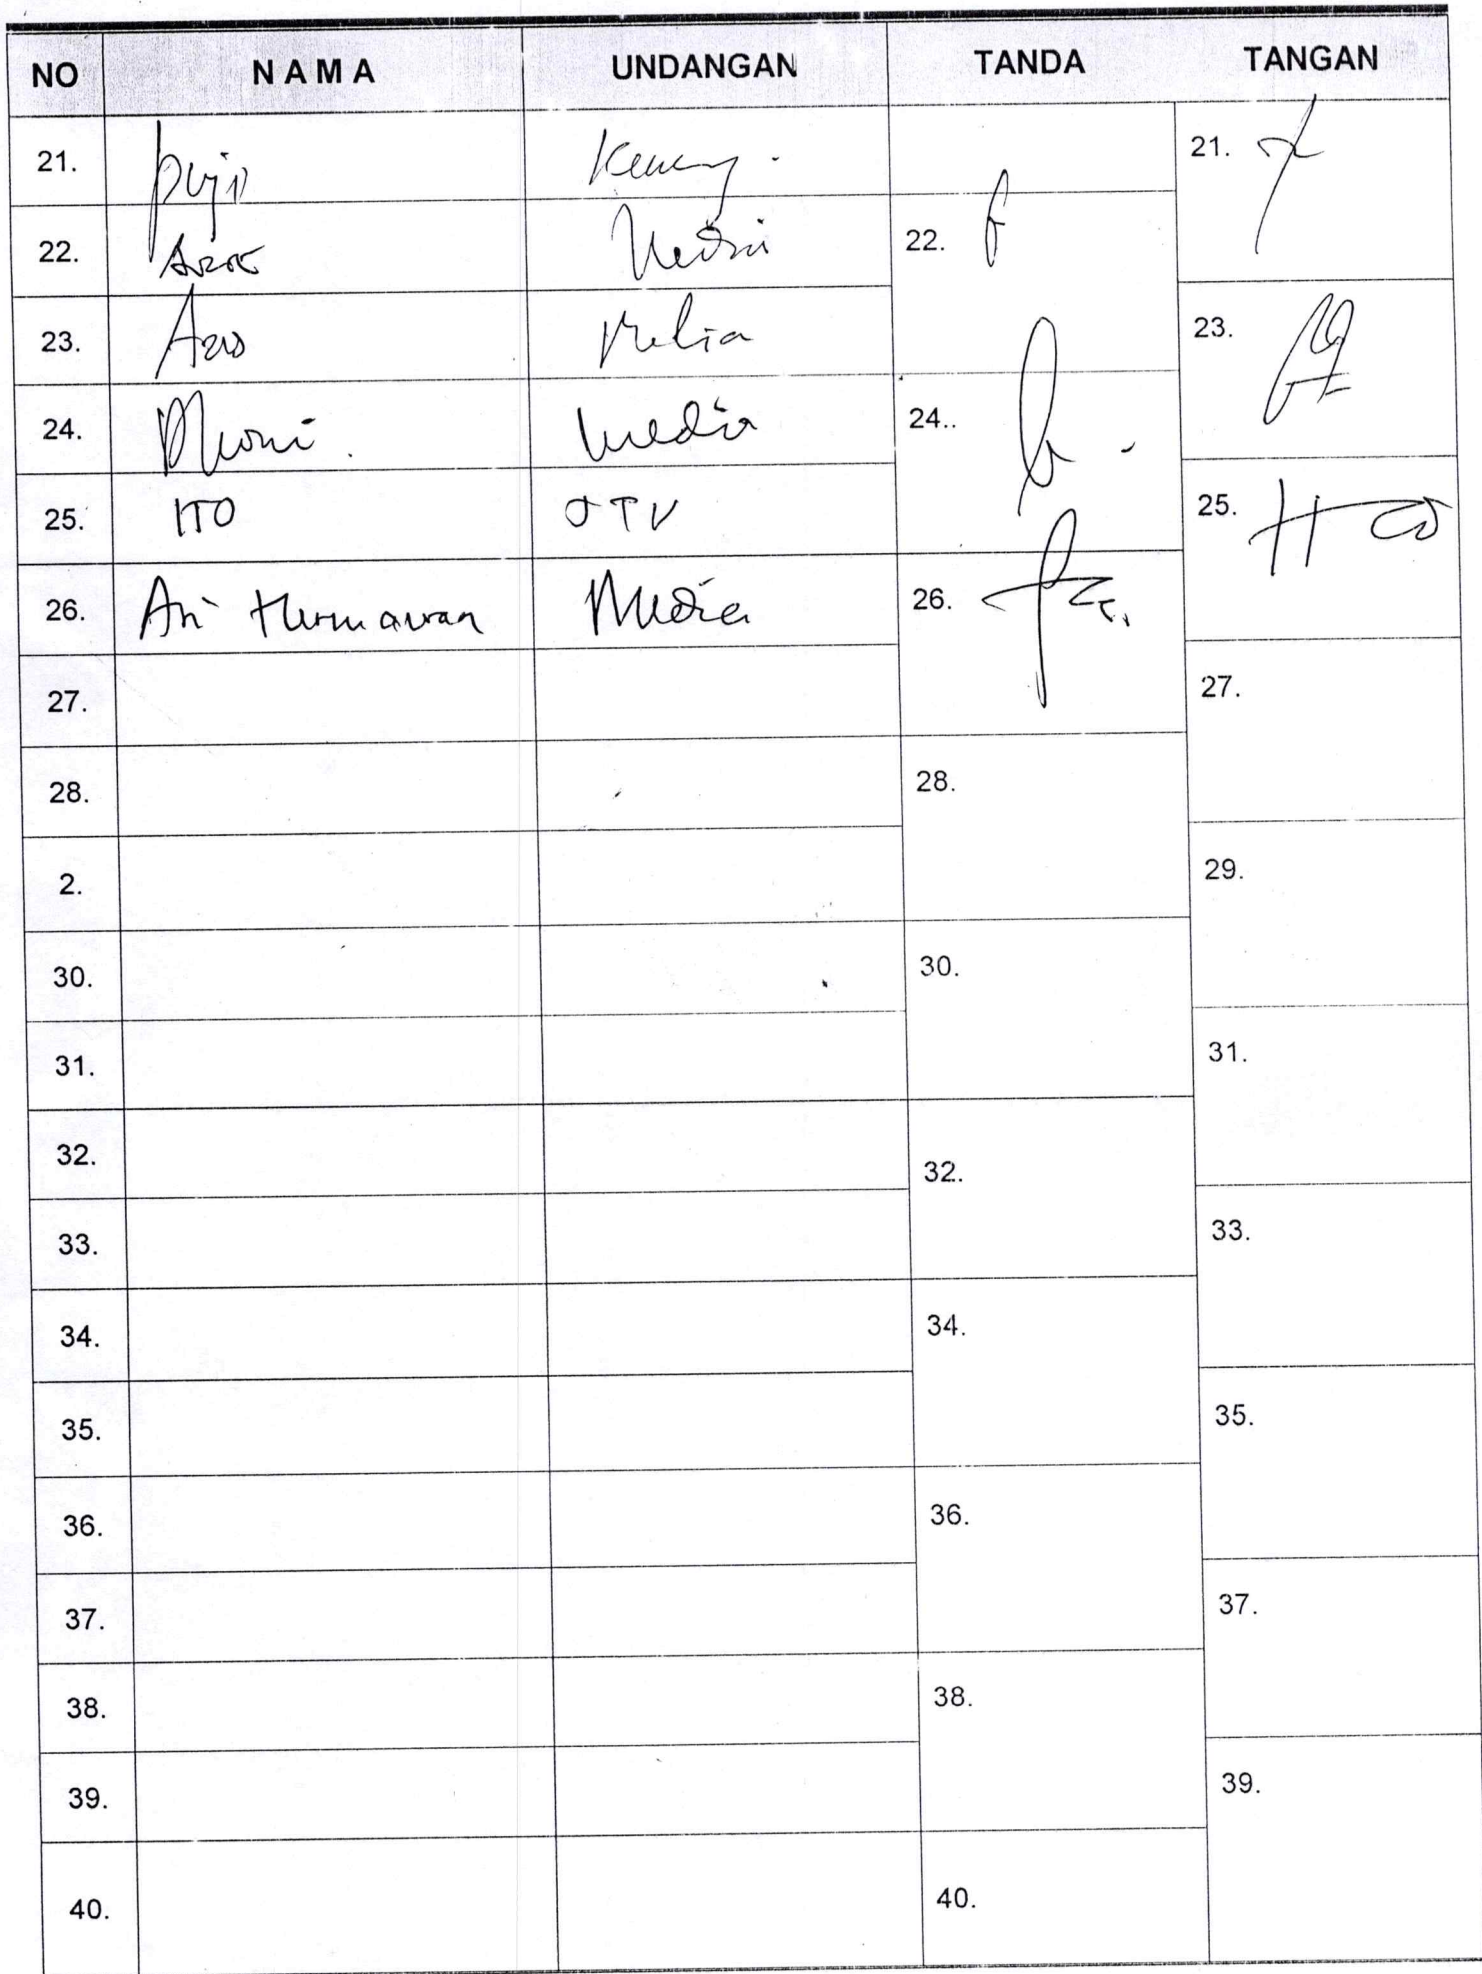 NO NAMA UNDANGAN TANDA TANGAN
21. Puji 21.
22. 22.
23. Media 23.
24. Media 24..
25. ITO JTV 25.
26. Ari Hermawan Media 26.
27. 27.
28. 28.
2. 29.
30. 30.
31. 31.
32. 32.
33. 33.
34. 34.
35. 35.
36. 36.
37. 37.
38. 38.
39. 39.
40. 40.